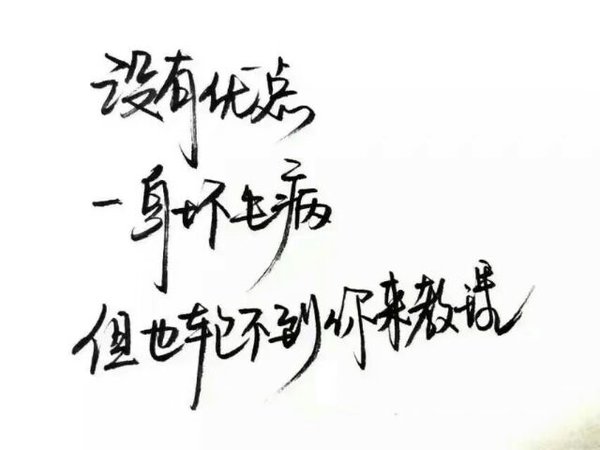 没有优点
一身坏毛病
但也轮不到你来教误